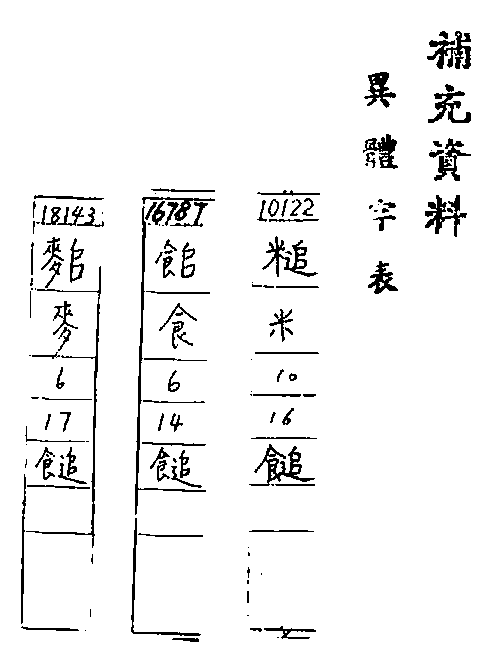 補充資料
異體字表
10122
米
10
16
䭔
16787
食
6
14
䭔
18143
麥
6
17
䭔